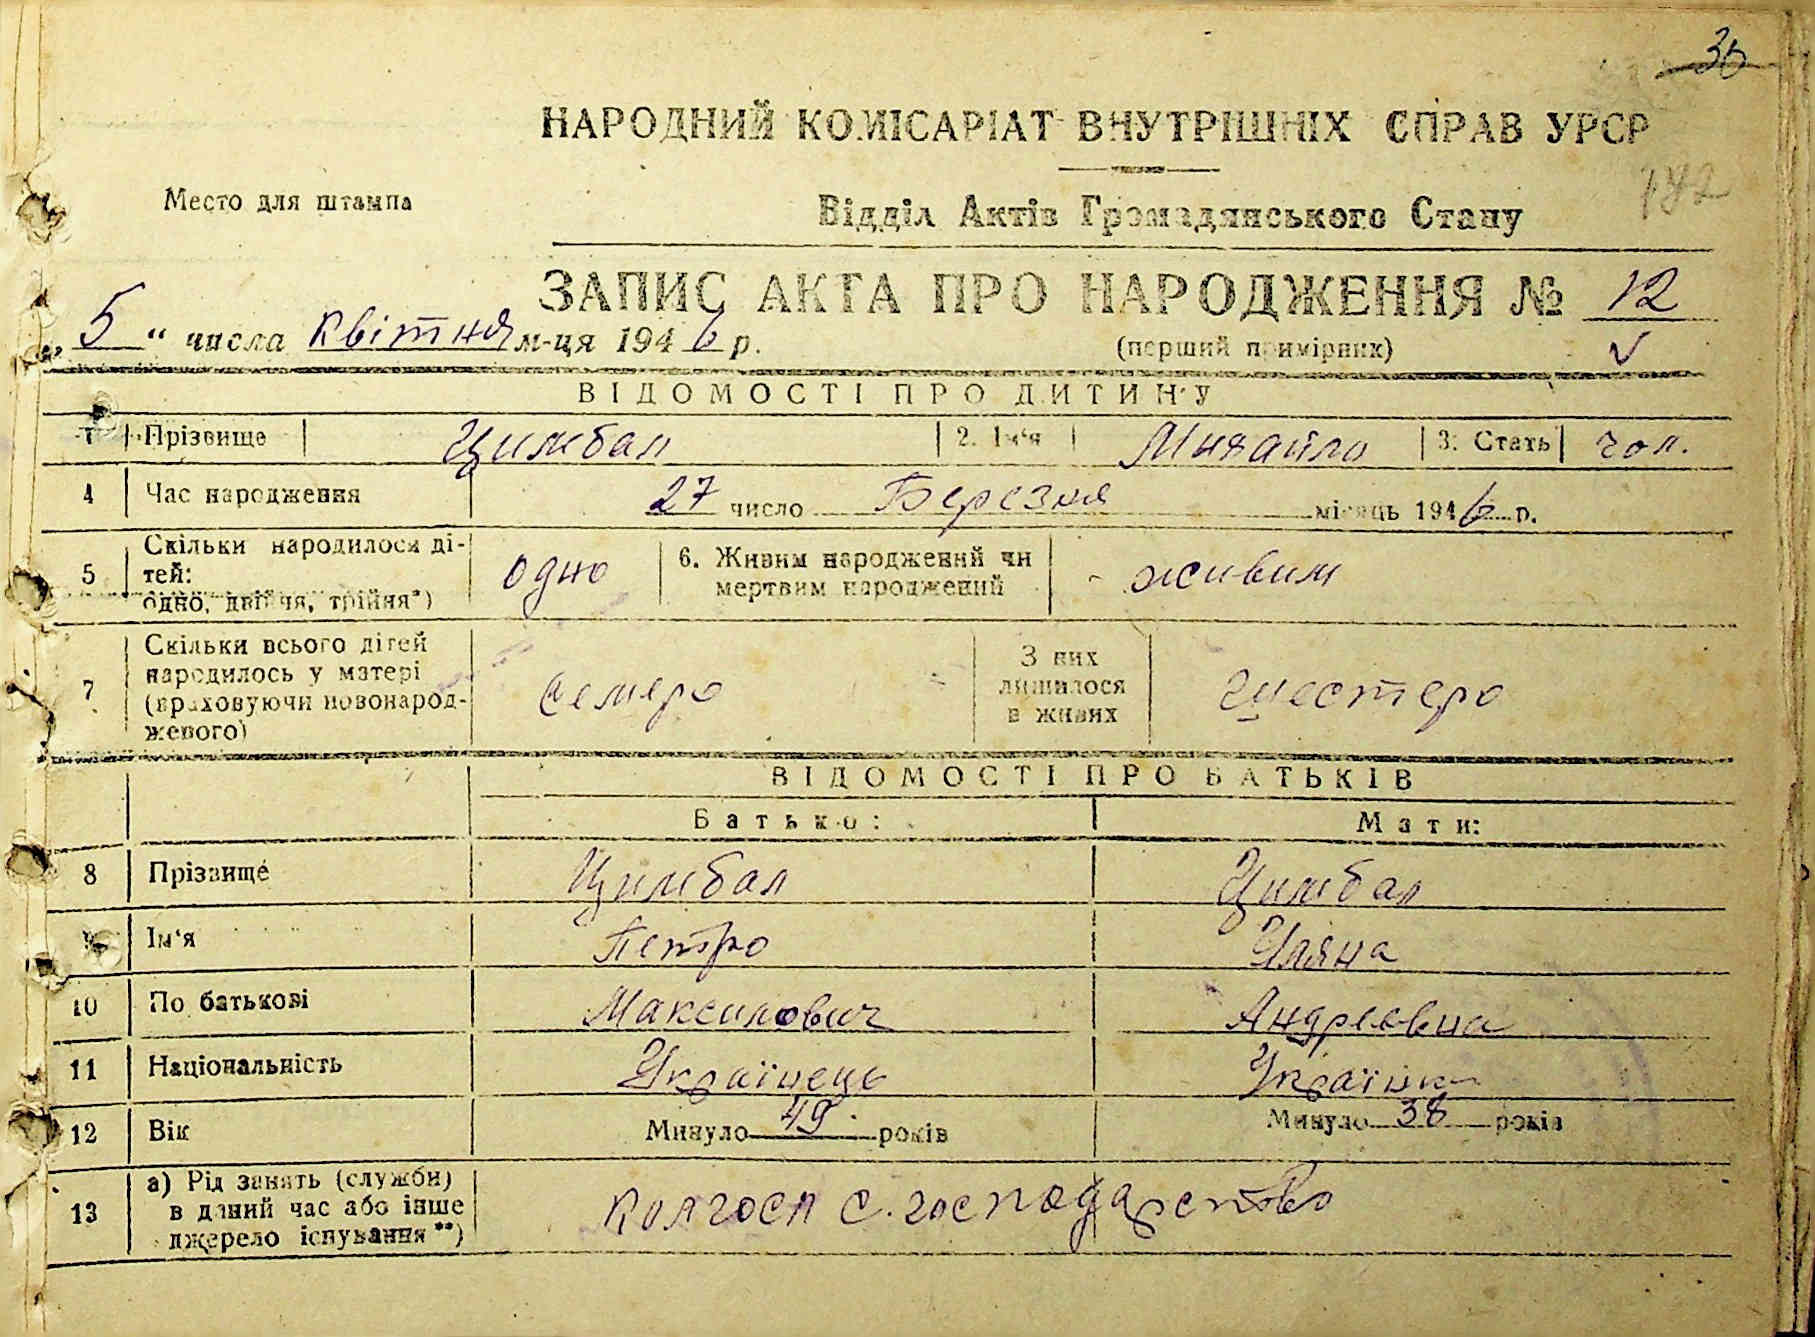 36
НАРОДНИЙ КОМІСАРІАТ ВНУТРІШНІХ СПРАВ УРСР
Место для штампа
Відділ Актів Громадянського Стану
ЗАПИС АКТА ПРО НАРОДЖЕННЯ № 12
„ 5 “ числа квітня м-ця 1946 р.
(перший примірник)
ВІДОМОСТІ ПРО ДИТИНУ
1 Прізвище Цимбал 2. Ім‘я Михайло 3. Стать чол.
4 Час народження 27 число Березня місяць 1946 р.
5 Скільки народилося ді-
тей:
одно, двійня, трійня*) одно 6. Живим народжений чи
мертвим народжений живим
7 Скільки всього дітей
народилось у матері
(враховуючи новонарод-
женого) семеро З них
лишилося
в живих шестеро
ВІДОМОСТІ ПРО БАТЬКІВ
Батько: Мати:
8 Прізвище Цимбал Цимбал
9 Ім‘я Петро Уляна
10 По батькові Максимович Андреевна
11 Національність Українець Українка
12 Вік Минуло 49 років Минуло 38 років
13 а) Рід занять (служби)
в даний час або інше
джерело існування**) колгосп с. господарство